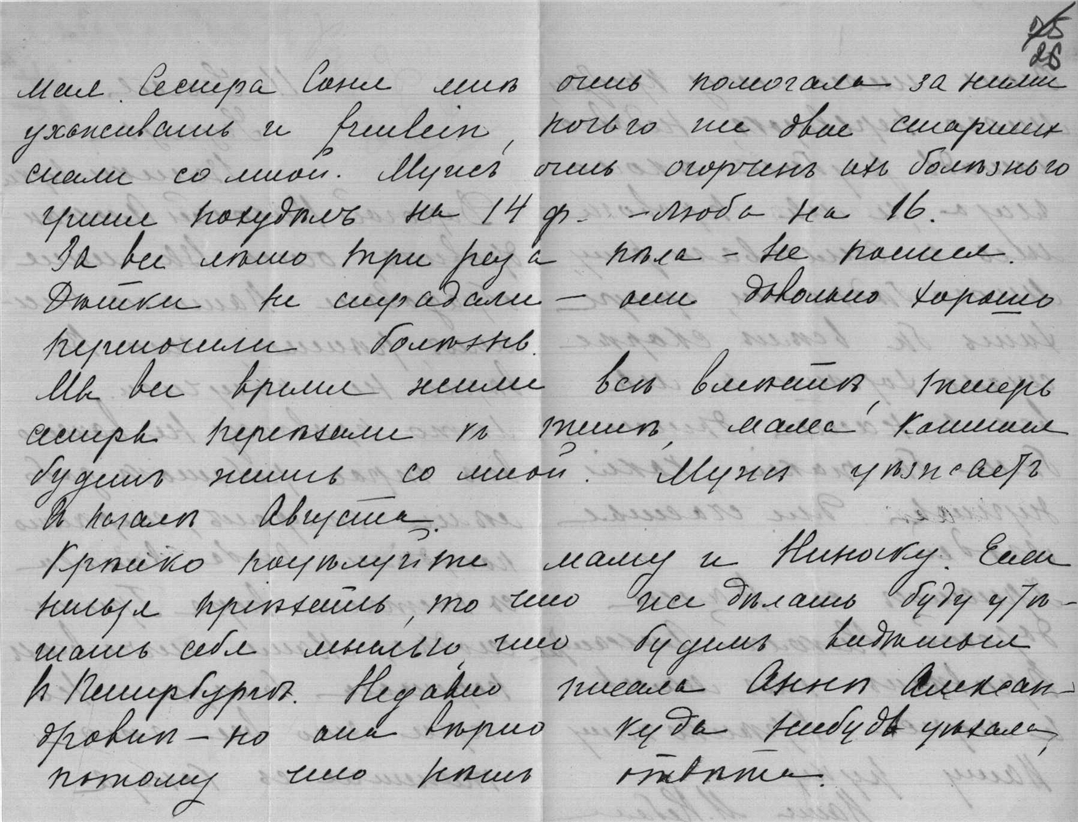 25
26
мал. Сестра Соня мнѣ очень помогала за ними
ухаживать и fraulein, ночью же двое старших
спали со мной. Мужъ очень огорченъ ихъ болѣзнью
Гриша похудѣлъ на 14 ф. - Люба на 16.
За все лѣто три раза пила - не
Дѣтки не страдали — они довольно хорошо
переносили болѣзнь.
Мы все время жили всѣ вмѣстѣ, теперь
сестры переѣхали къ мама
будетъ жить со мной. Мужъ уѣзжаетъ
въ началѣ Августа.
Крѣпко поцѣлуйте маму и Ниночку. Если
нельзя пріѣхать, то что же дѣлать буду утѣ-
шать себя мыслью, что будемъ видѣться
въ Петербургѣ. Недавно писала Аннѣ Алексан-
дровнѣ — но она вѣрно куда нибудь уѣхала,
потому что нѣтъ отвѣта.